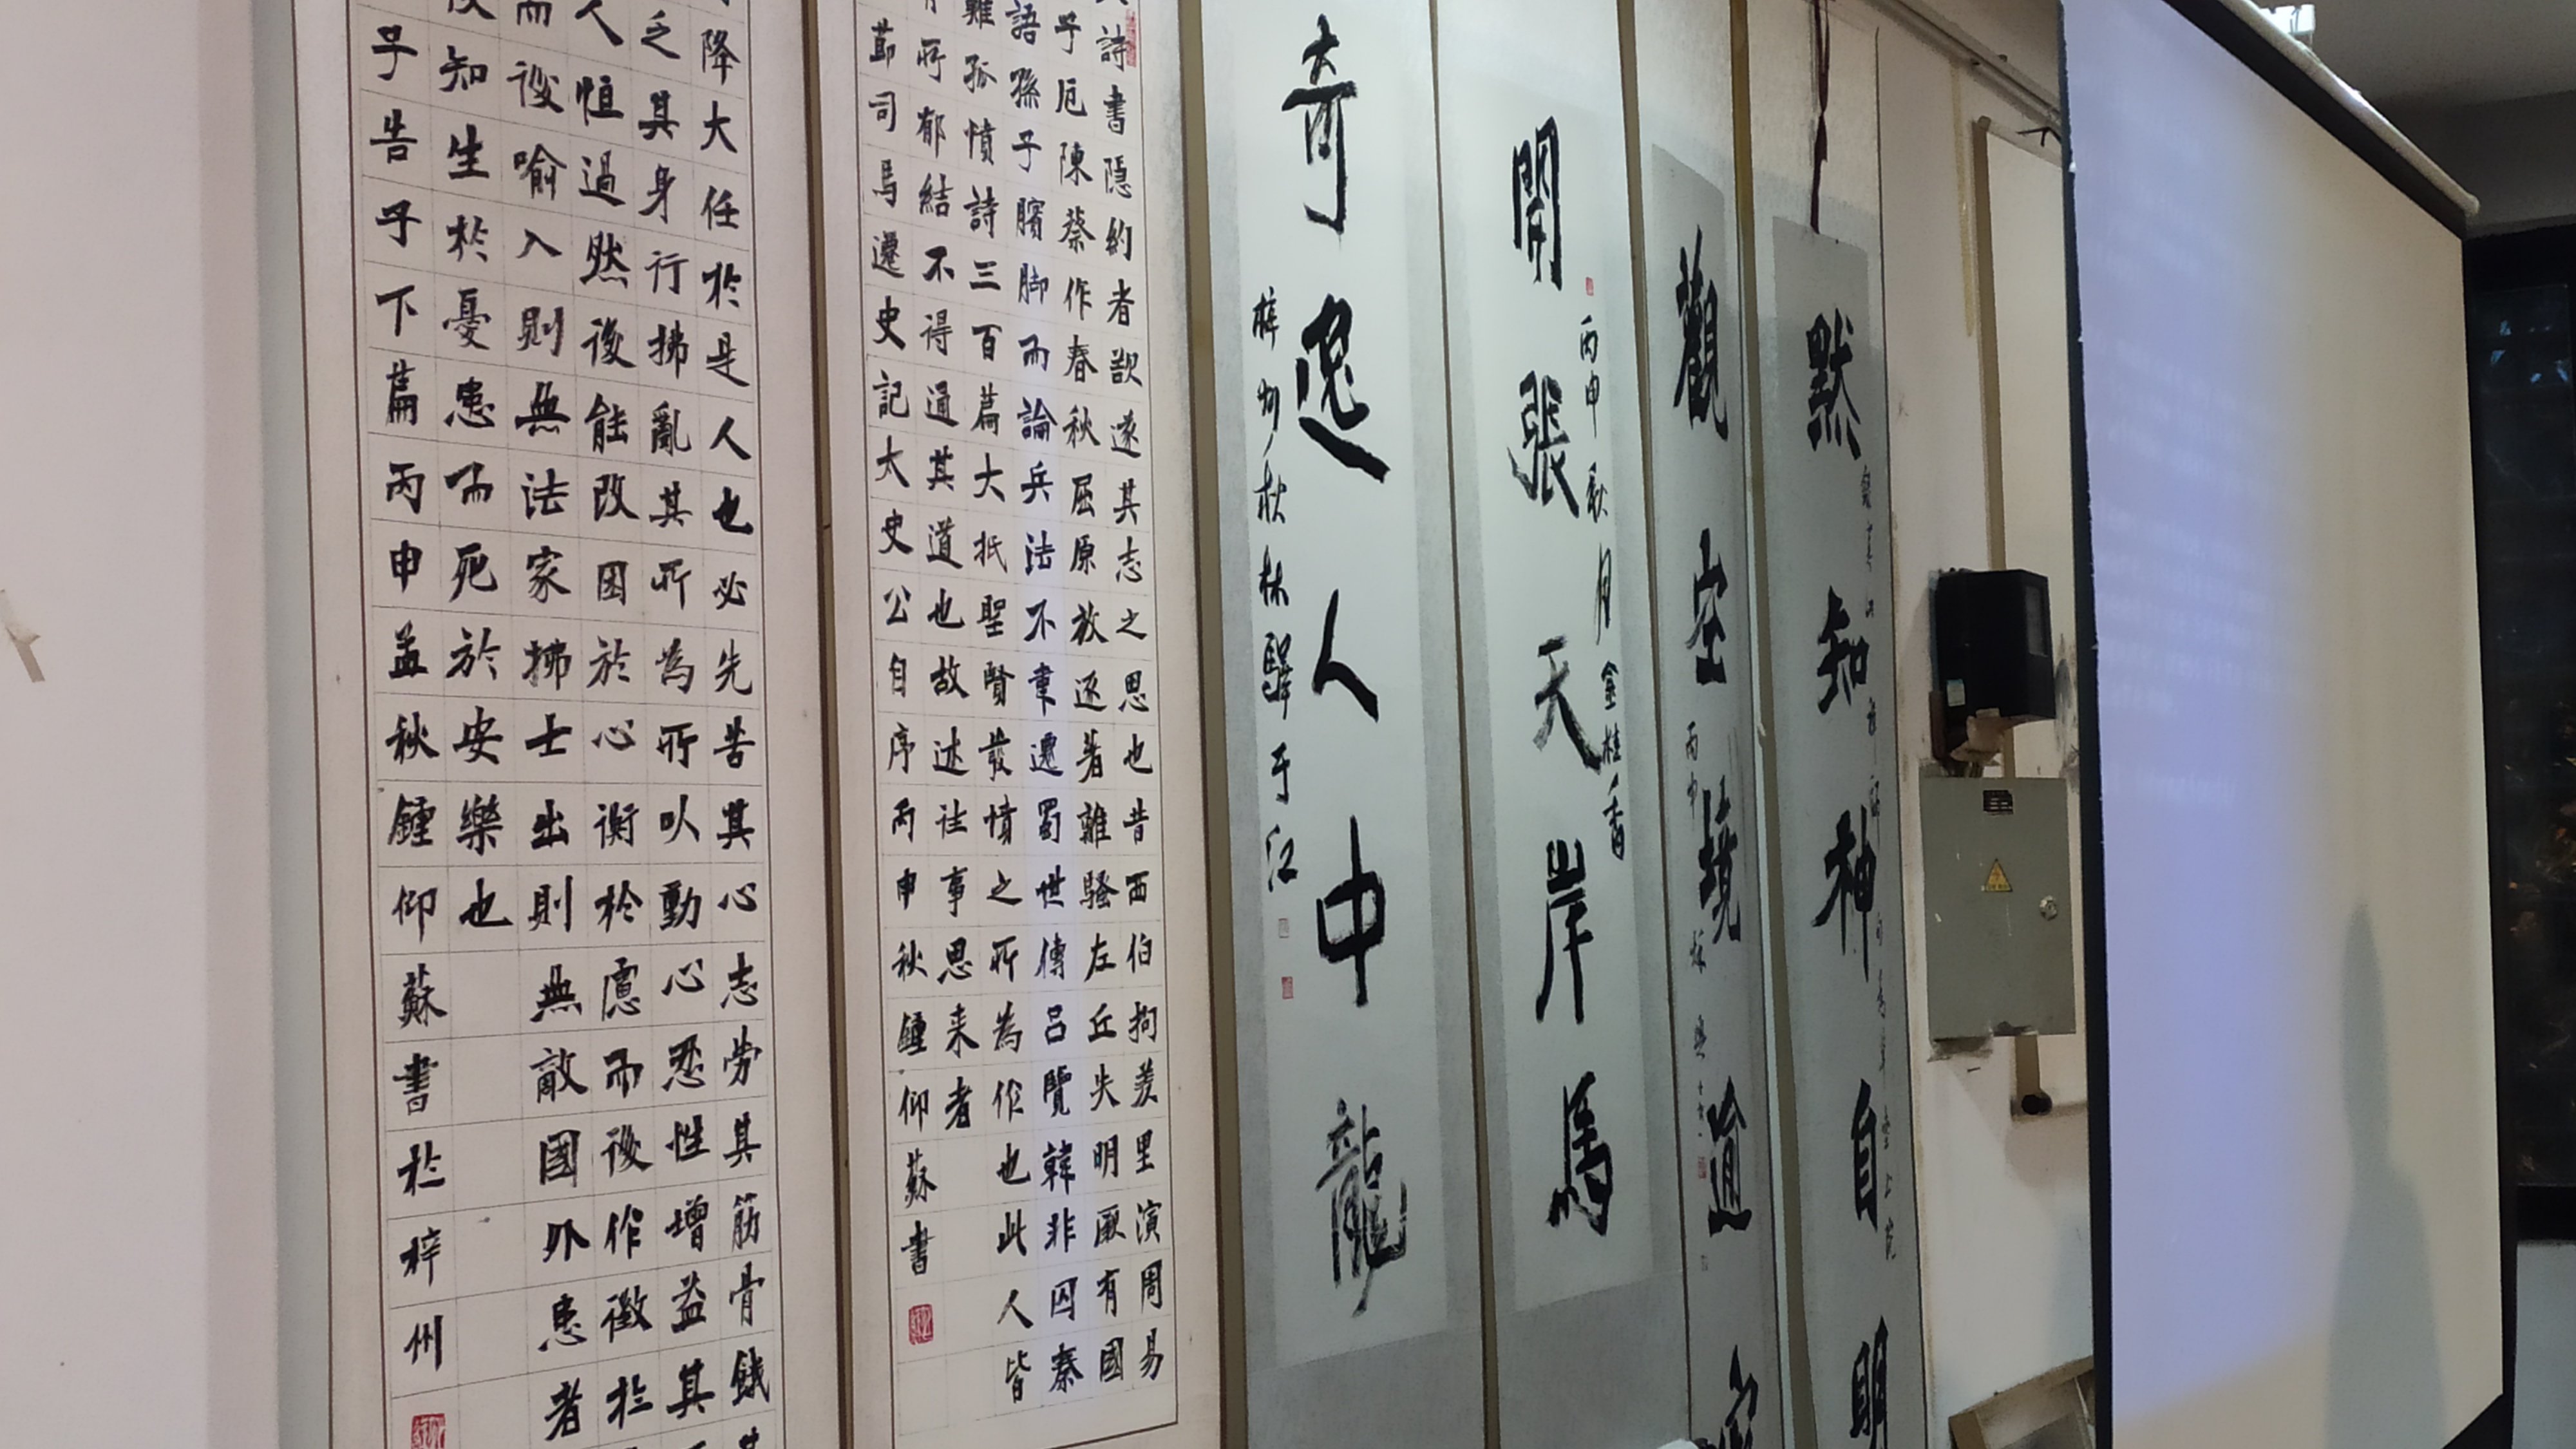 默知神自明
觀空境逾
丙申
開張天岸馬
丙申秋月金桂香
奇逸人中龍
梓州秋林驛于江
詩書隱約者欲遂其志之思也昔西伯拘羑里演周易
子厄陳蔡作春秋屈原放逐著離騷左丘失明厥有國
語孫子臏脚而論兵法不韋遷蜀世傳呂覽韓非囚秦
難孤憤詩三百篇大抵聖賢發憤之所為作也此人皆
有所郁結不得通其道也故述往事思来者
節司馬遷史記太史公自序丙申秋鍾仰蘇書
降大任於是人也必先苦其心志勞其筋骨餓其
乏其身行拂亂其所為所以動心忍性增益其
人恒過然後能改困於心衡於慮而後作徵於
而後喻入則無法家拂士出則無敵國外患者
後知生於憂患而死於安樂也
子告子下篇丙申孟秋鍾仰蘇書於梓州